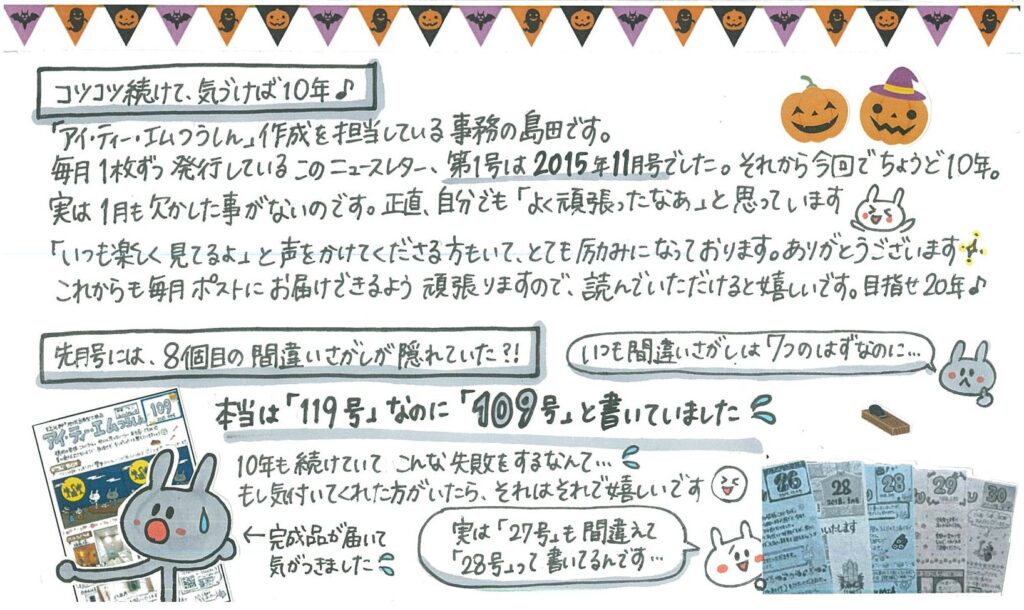 コツコツ続けて、気づけば10年♪
「アイ・ティー・エムつうしん」作成を担当している事務の島田です。
毎月1枚ずつ発行しているこのニュースレター、第1号は2015年11月号でした。それから今回でちょうど10年。
実は1月も欠かした事がないのです。正直、自分でも「よく頑張ったなぁ」と思っています
「いつも楽しく見てるよ」と声をかけてくださる方もいて、とても励みになっております。ありがとうございます
これからも毎月ポストにお届けできるよう頑張りますので、読んでいただけると嬉しいです。目指せ20年♪
先月号には、8個目の間違いさがしが隠れていた?!
いつも間違いさがしは7つのはずなのに…
本当は「119号」なのに「109号」と書いていました
10年も続けていてこんな失敗をするなんて…
もし気付いてくれた方がいたら、それはそれで嬉しいです
←完成品が届いて
気がつきました
実は「27号」も間違えて
「28号」って書いてるんです…
アイ・ティー・エムつうしん
109
26
28
28
29
30
いたします